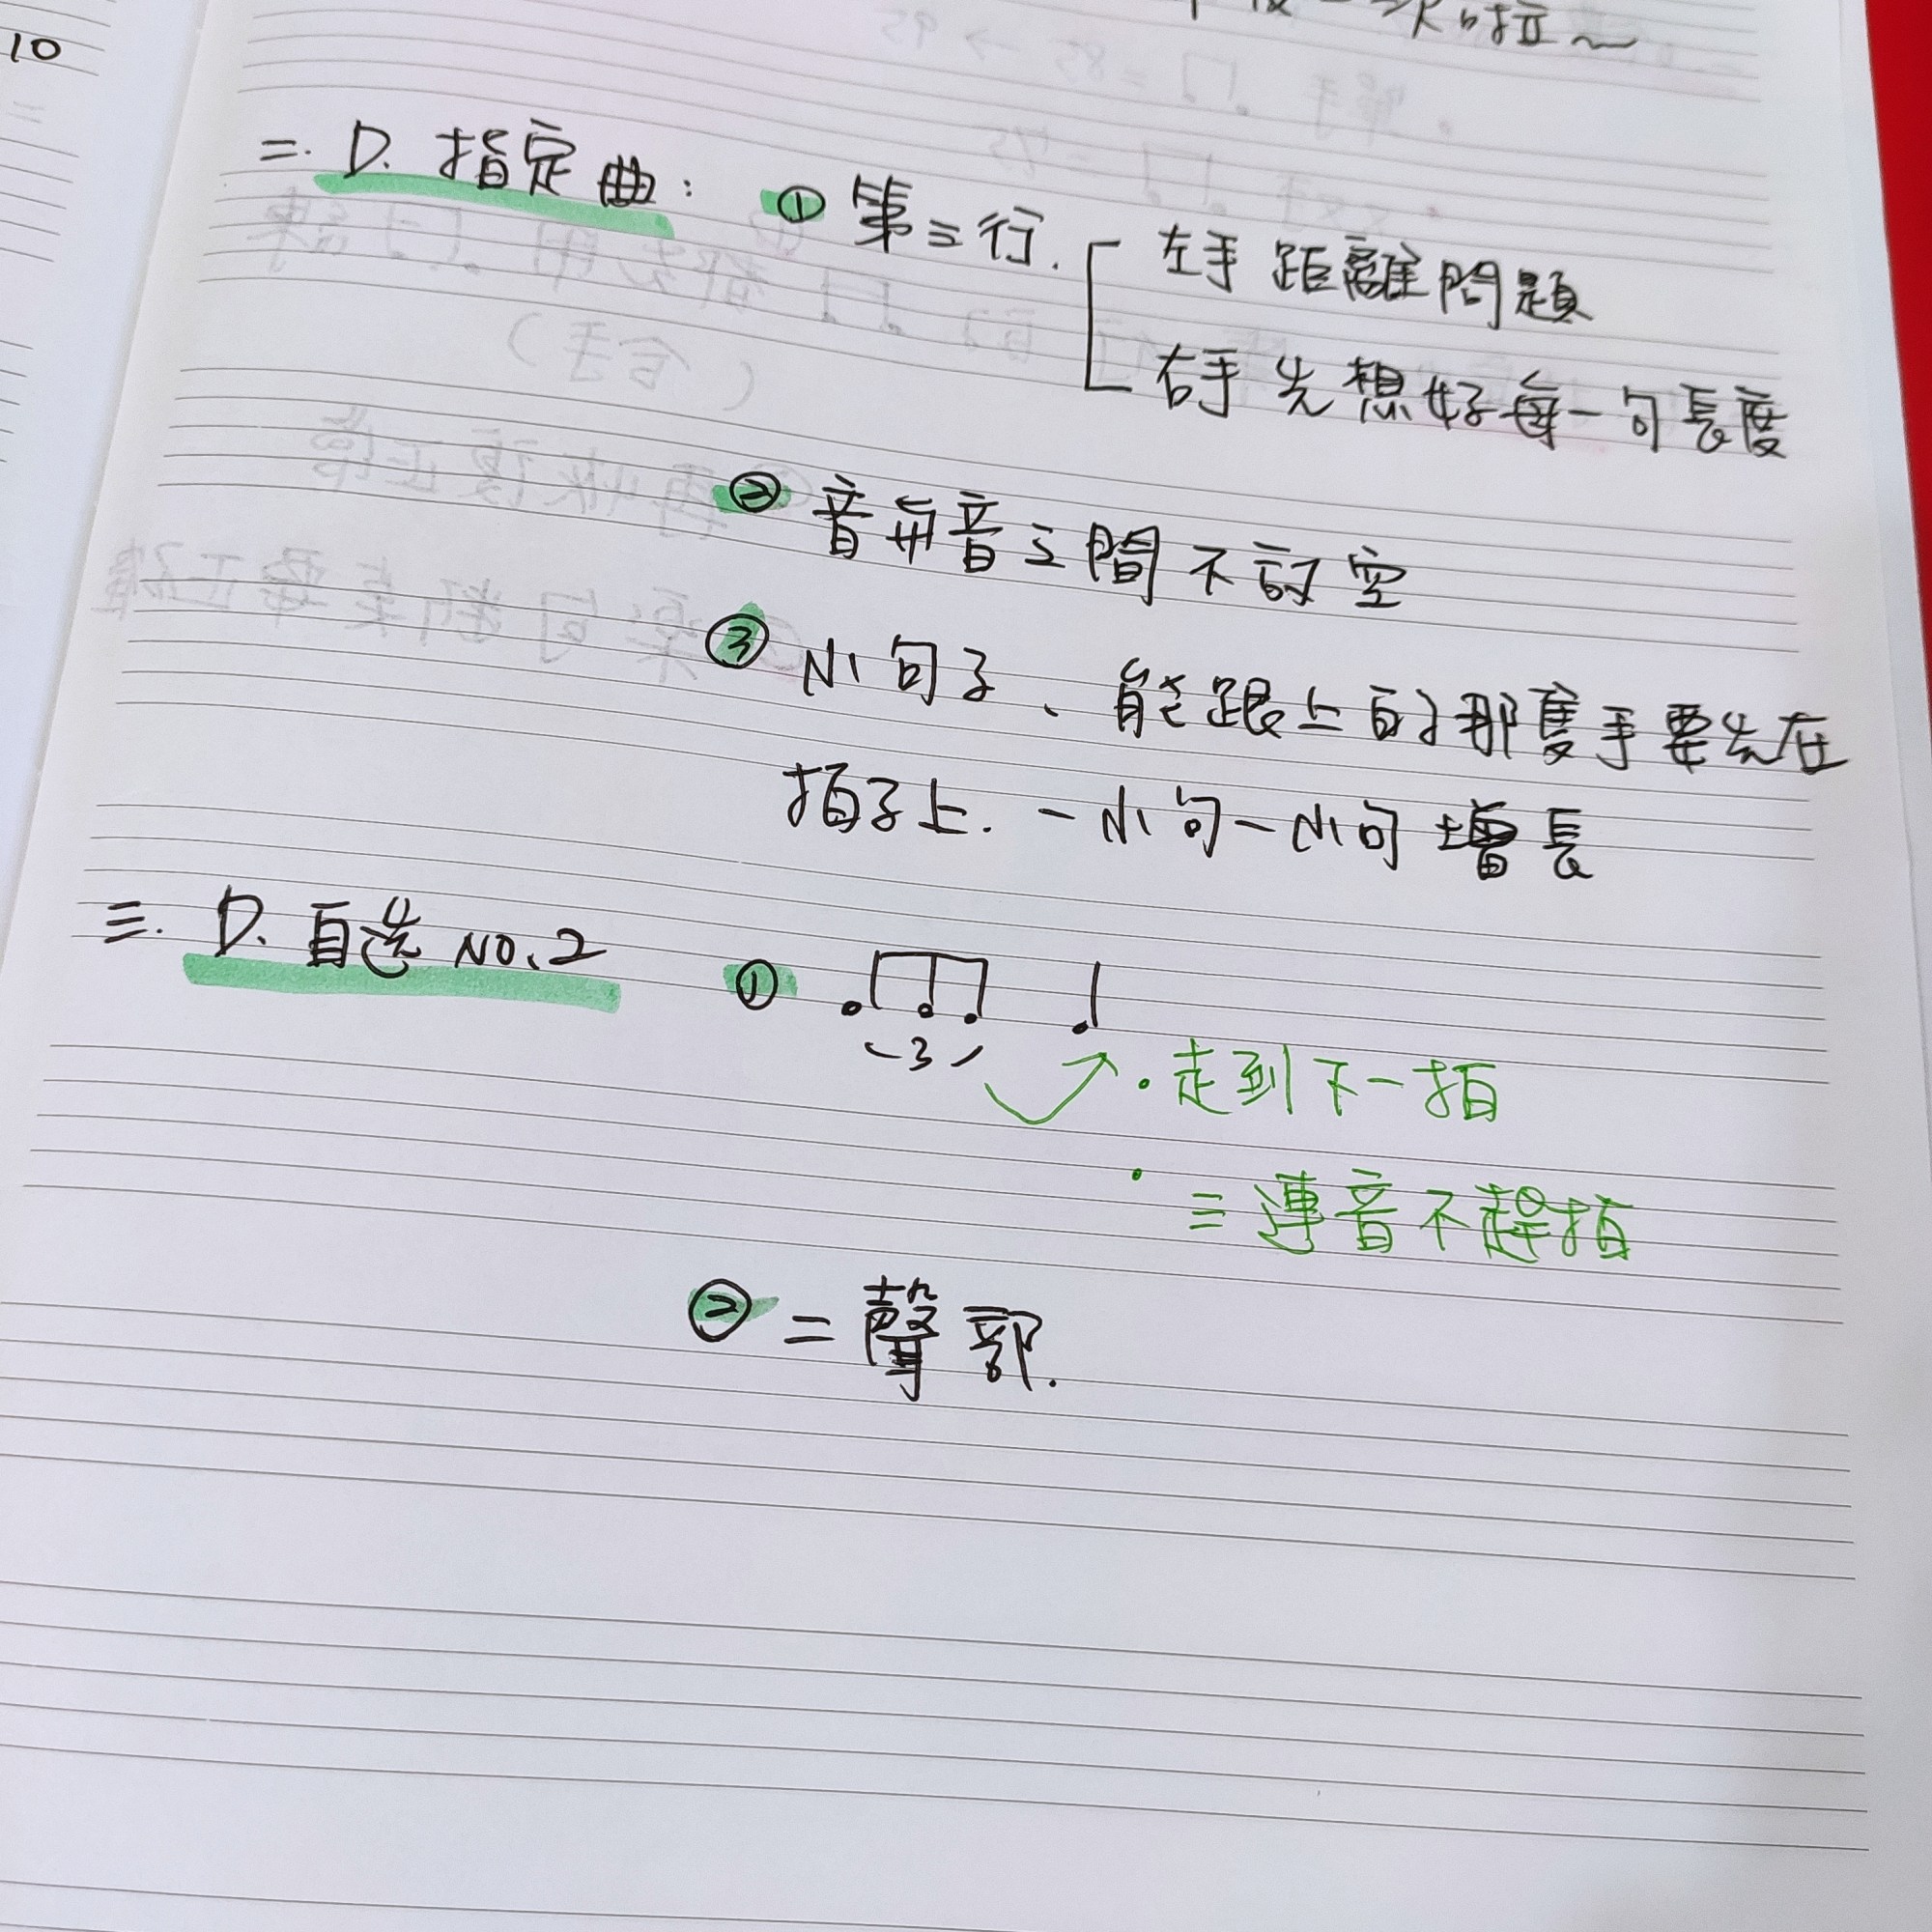 10
二. D. 指定曲: ① 第三行.
左手 距離問題
右手 先想好每一句長度
② 音與音之間不許空
③ 小句子、能跟上的那隻手要先在
拍子上. 一小句一小句增長
三. D. 自選 NO.2 ①
3
· 走到下一拍
· 三連音不趕拍
② 二聲部.